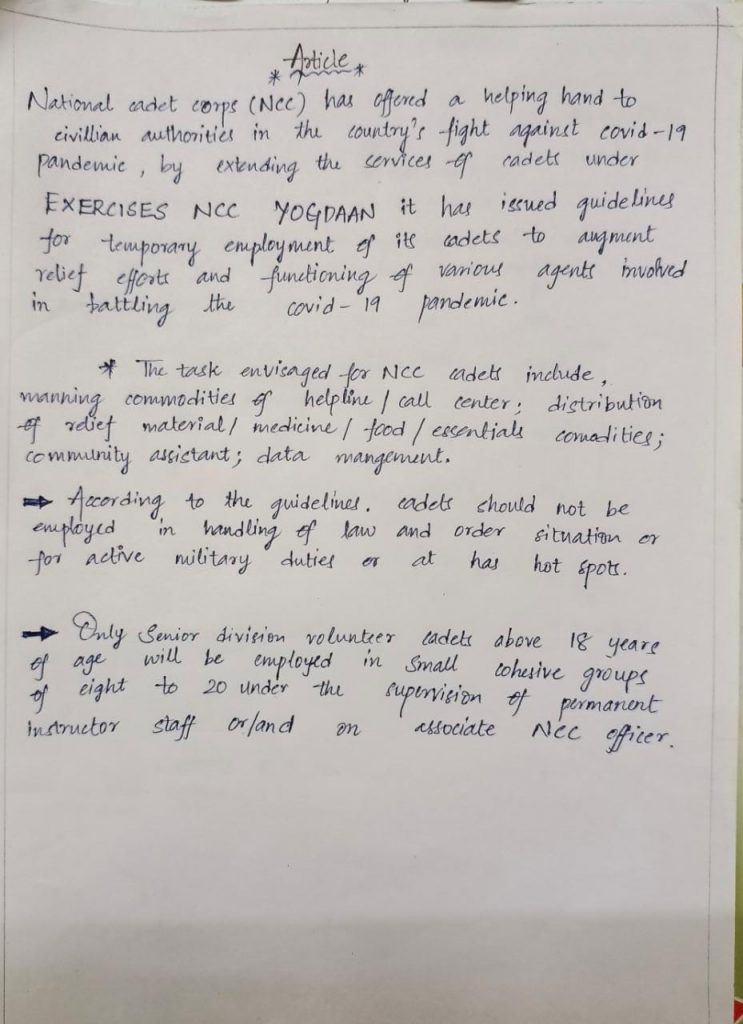 * Article *
National cadet corps (NCC) has offered a helping hand to
civillian authorities in the country's fight against covid-19
pandemic, by extending the services of cadets under
EXERCISES NCC YOGDAAN it has issued guidelines
for temporary employment of its cadets to augment
relief efforts and functioning of various agents involved
in battling the covid-19 pandemic.
* The task envisaged for NCC cadets include,
manning commodities of helpline / call center; distribution
of relief material / medicine / food / essentials comodities;
community assistant; data mangement.
➡ According to the guidelines. cadets should not be
employed in handling of law and order situation or
for active military duties or at has hot spots.
➡ Only Senior division volunteer cadets above 18 years
of age will be employed in small cohesive groups
of eight to 20 under the supervision of permanent
instructor staff or/and on associate NCC officer.